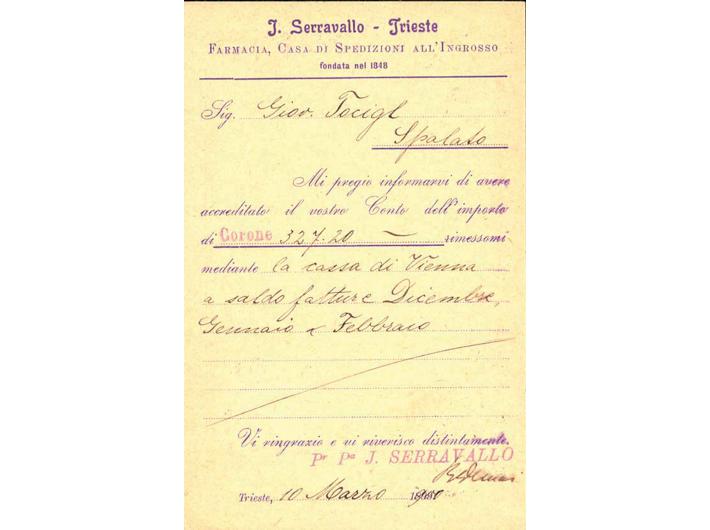 J. Serravallo - Trieste
Farmacia, Casa di Spedizioni all'Ingrosso
fondata nel 1848
Sig. Giov. Tocigl
Spalato
Mi pregio informarvi di avere
accreditato il vostro Conto dell'importo
di Corone 327.20 — rimessomi
mediante la cassa di Vienna
a saldo fatture Dicembre,
Gennaio e Febbraio
Vi ringrazio e vi riverisco distintamente.
Pr Pa J. SERRAVALLO
Trieste, 10 Marzo